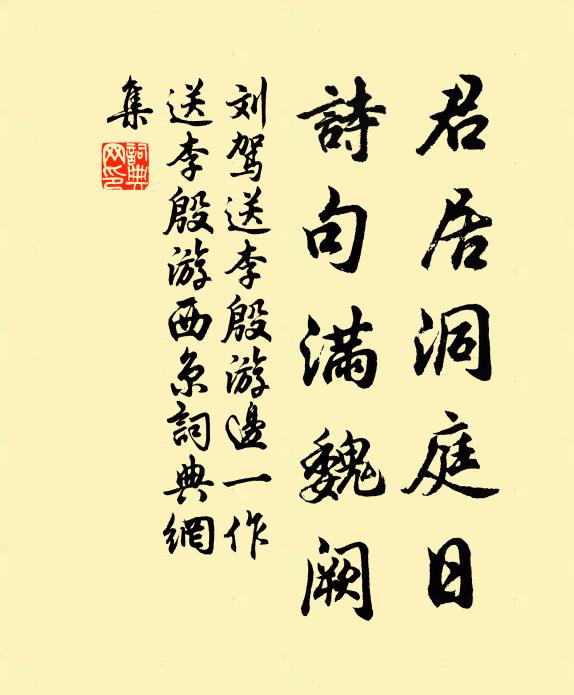 君居洞庭日
詩句满魏阙
刘驾送李殷游邊一作
送李殷游西京詞典網
集
詞典
网印